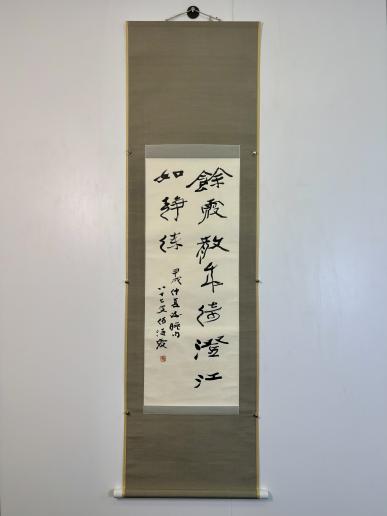 餘霞散成綺澄江
如靜練
甲戌仲夏
八十七叟